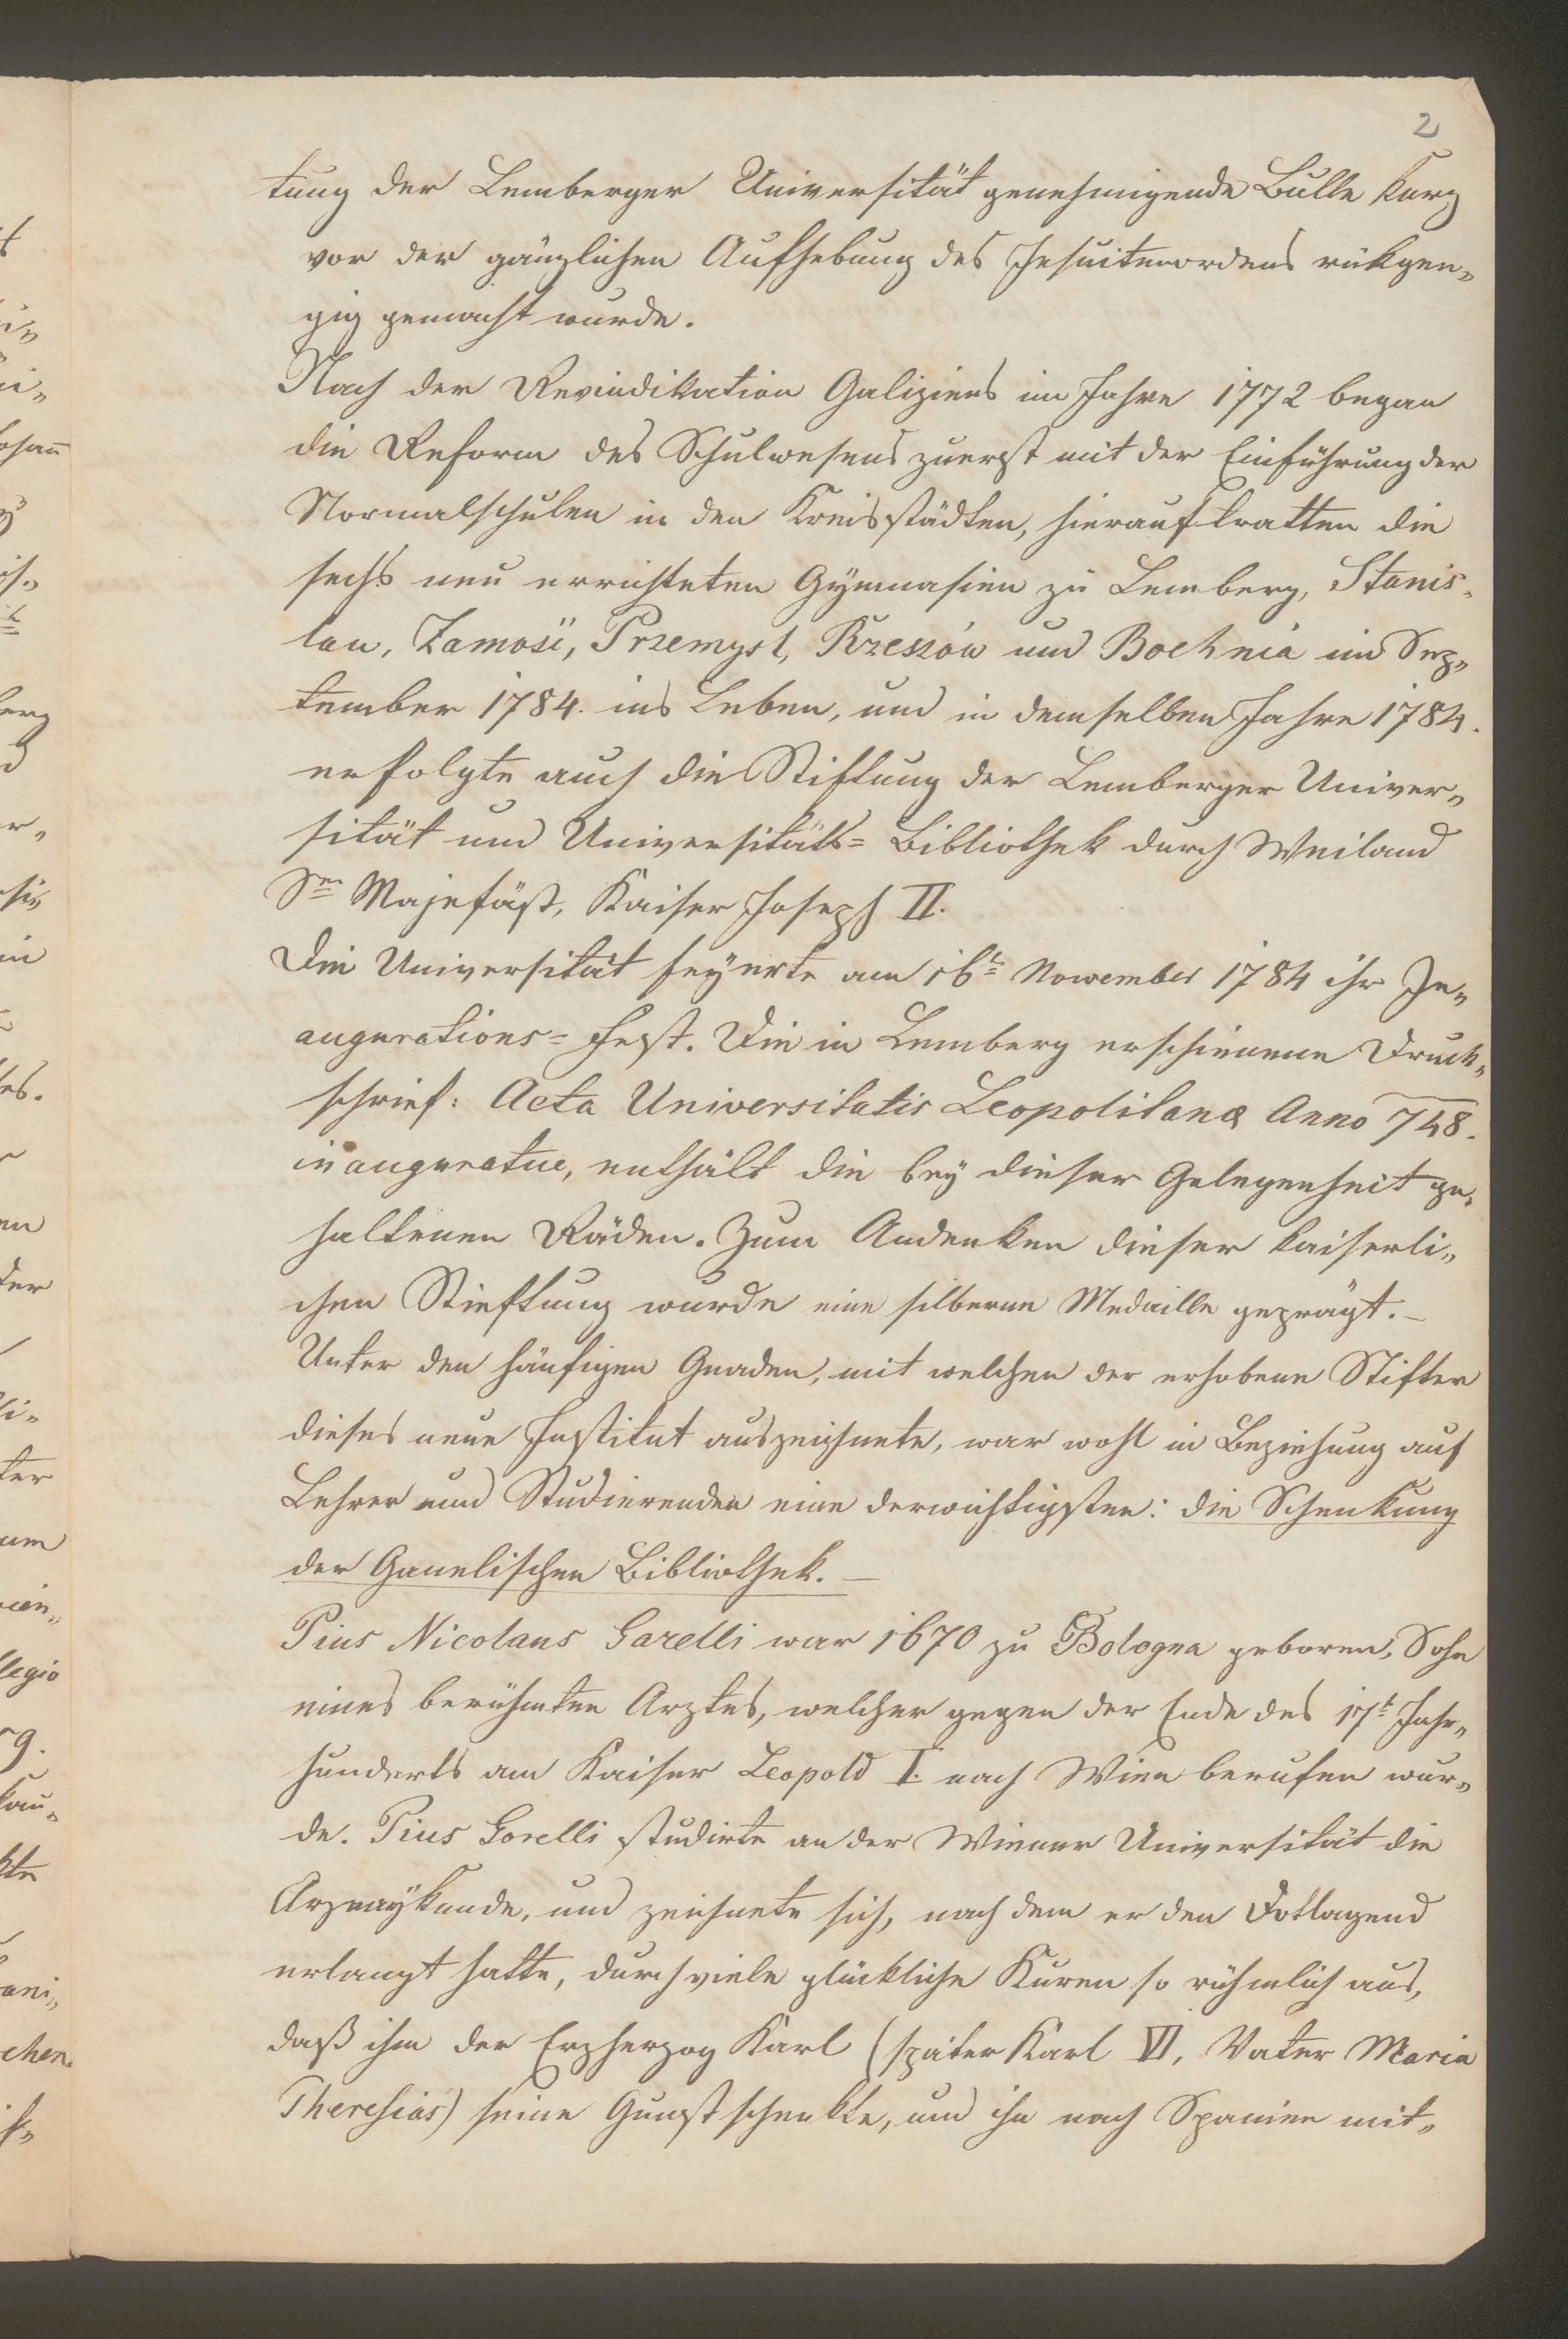 2
tung der Lemberger Universität genehmigende Bulle kurz
vor der gänzlichen Aufhebung des Jesuitenordens rükgen„
gig gemacht wurde.
Nach der Revindikation Galiziens im Jahre 1772 began
die Reform des Schulwesens zuerst mit der Einführung der
Normalschulen in den Kreisstädten, hierauf tratten die
sechs neu errichteten Gymnasien zu Lemberg, Stanis„
lau, Zamość, Przemysl, Rzeszów und Bochnia im Sep„
tember 1784. ins Leben, und in demselben Jahre 1784.
erfolgte auch die Stiftung der Lemberger Univer„
sität und Universitäts= Bibliothek durch Weiland
Sr Majestät, Kaiser Joseph II.
Die Universität feyerte am 16t November 1784 ihr In„
augurations= Fest. Die in Lemberg erschienene Druck„
schrief: Acta Universitatis Leopolitanæ Anno 748.
inauguratue, enthält die bey dieser Gelegenheit ge„
haltenen Räden. Zum Andenken dieser kaiserli„
chen Stieftung wurde eine silberne Medaille geprägt. –
Unter den häufigen Gnaden, mit welchen der erhobene Stifter
dieses neue Institut auszeichnete, war wohl in Beziehung auf
Lehrer und Studierenden eine derwichtigsten: die Schenkung
der Ganelischen Bibliothek. –
Pius Nicolaus Garelli war 1670 zu Bologna geboren, Sohn
eines berühmten Arztes, welcher gegen der Ende des 17t Jahr„
hunderts am Kaiser Leopold I. nach Wien berufen wur„
de. Pius Gorelli studirte an der Wiener Universität die
Arzneykunde, und zeichnete sich, nach dem er den
erlangt hatte, durch viele glückliche Kuren so rühmlich aus,
daß ihm der Erzherzog Karl (später Karl VI, Vater Maria
Theresias) seine Gunst schenkte, und ihn nach Spanien mit„